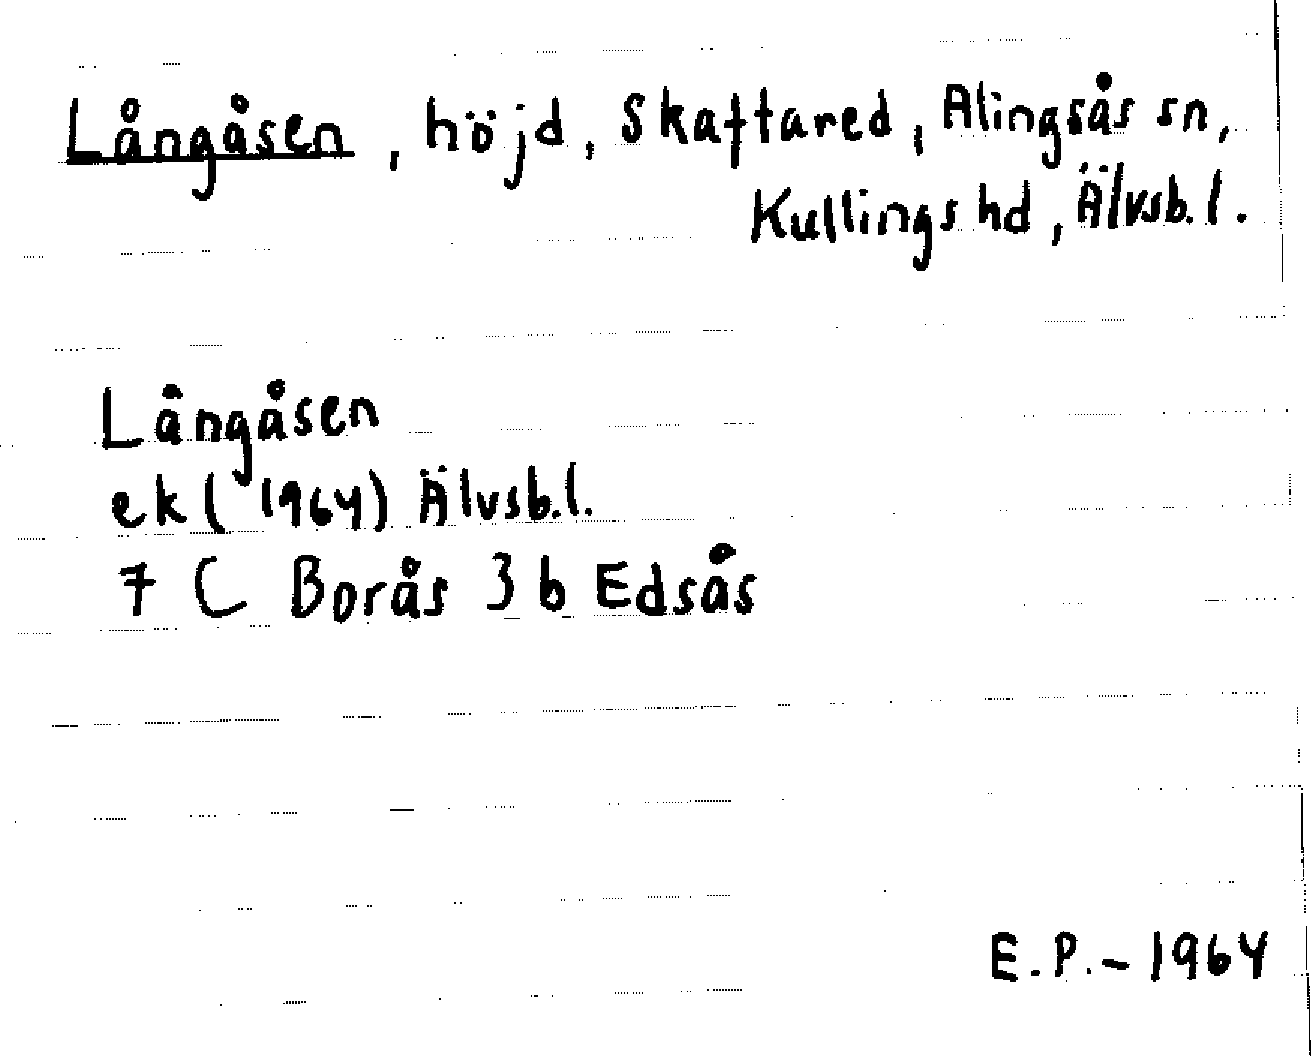 Långåsen, höjd, Skaftared, Alingsås sn,
Kullings hd, Älvsb. l.
Långåsen
ek (1964) Älvsb. l.
7 C Borås 3 b Edsås
E. P. - 1964